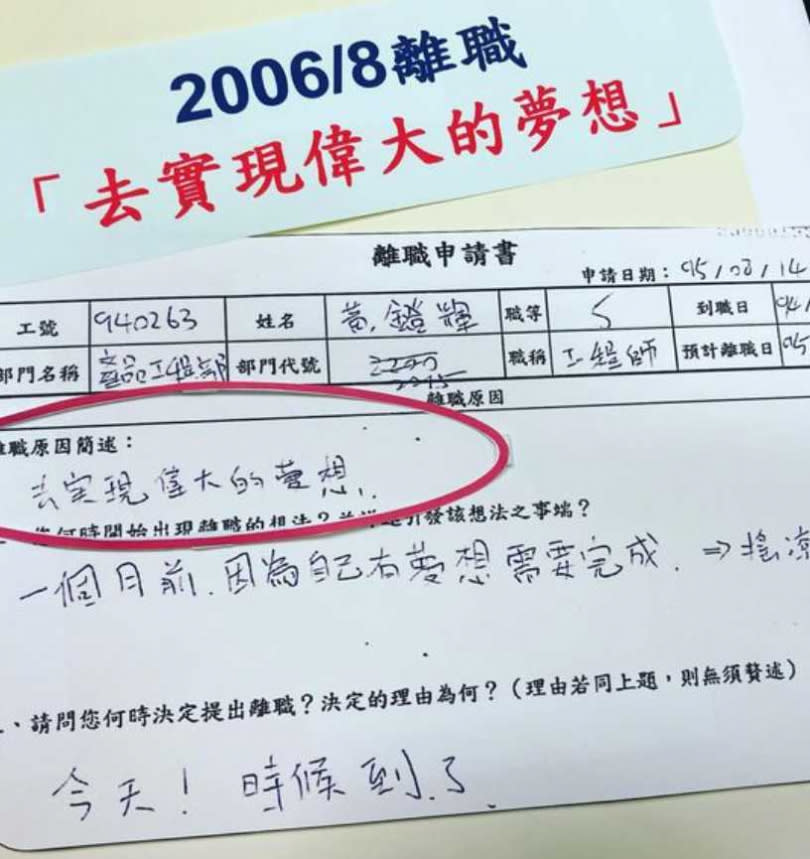 2006/8離職
「去實現偉大的夢想」
離職申請書
申請日期：95/08/14
工號 940263 姓名 黃鐙輝 職等 5 到職日 94/
部門名稱 產品工程部 部門代號 職稱 工程師 預計離職日 95
離職原因
離職原因簡述：
去实現偉大的夢想.
您何時開始出現離職的想法？引發該想法之事端？
一個月前.因為自己有夢想需要完成. ⇒搖滾
、請問您何時決定提出離職？決定的理由為何？（理由若同上題，則無須贅述）
今天！時候到了.